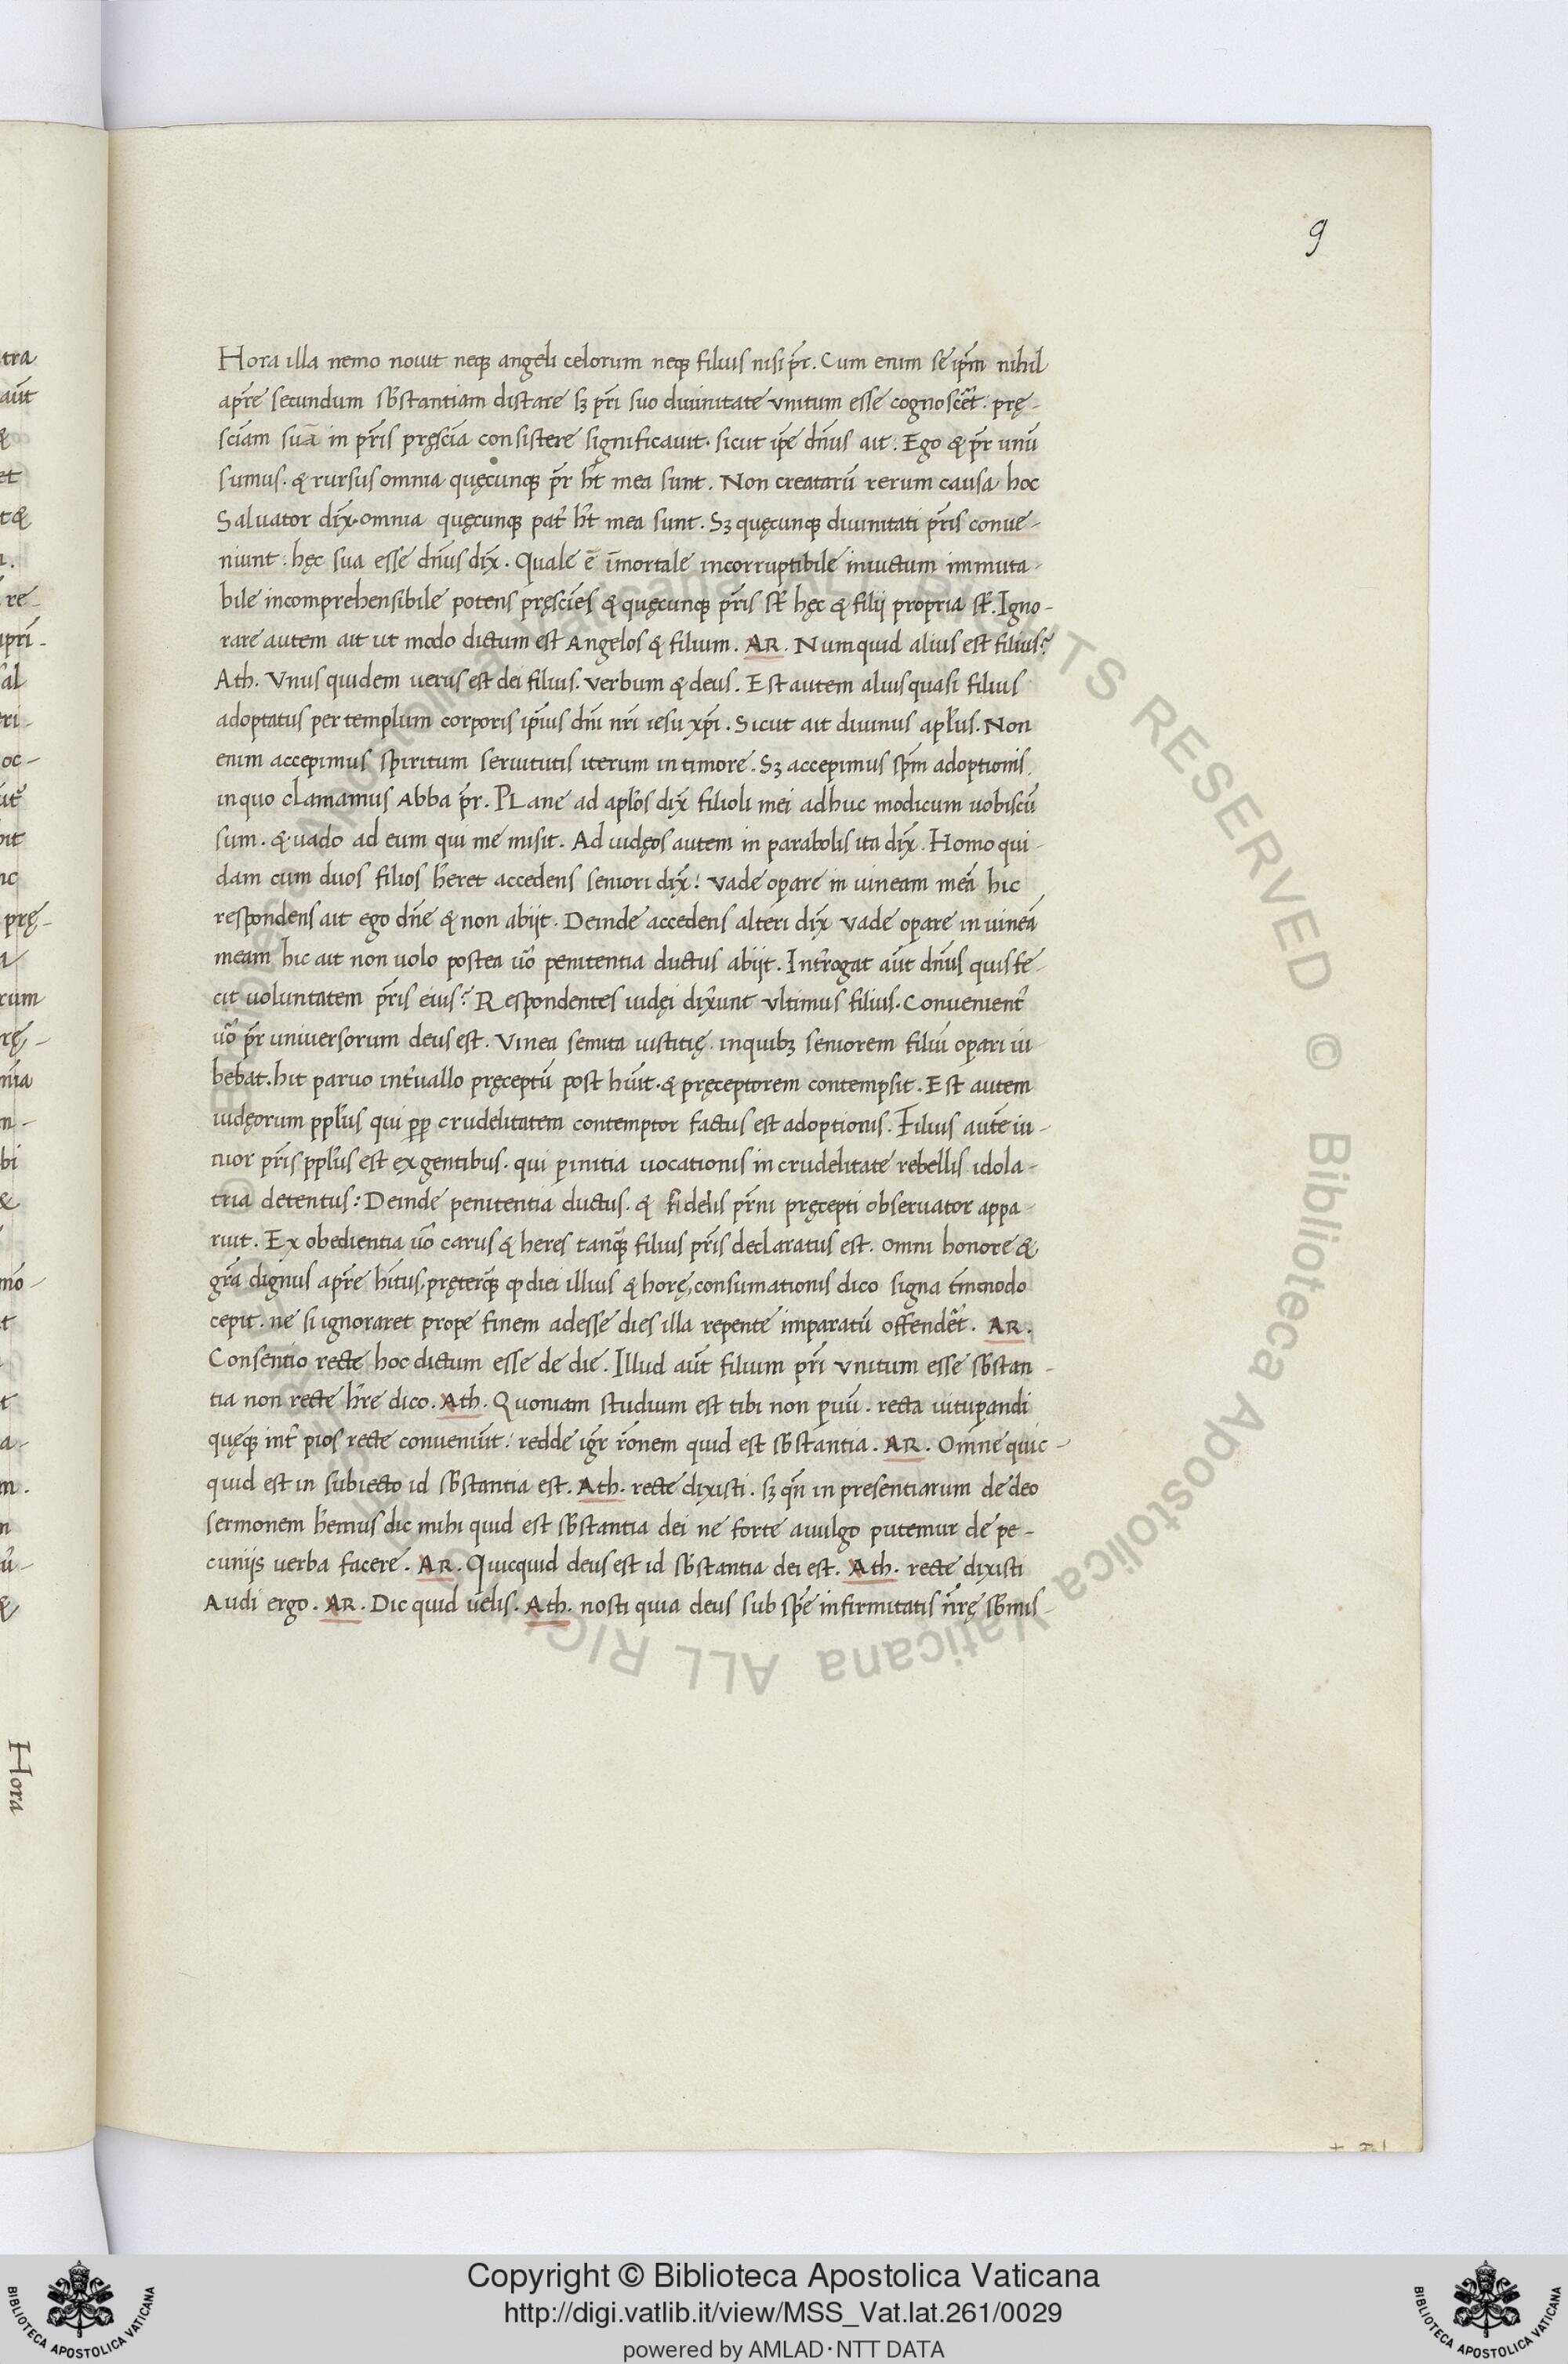 9
Hora illa nemo nouit neqꝫ angeli celorum neqꝫ filius nisi pr̃. Cum enim se ip̃m nihil
apr̃e secundum sb̃stantiam distare sꝫ pr̃i suo diuinitate vnitum esse cognoscẽt. prę-
sciam suã in pr̃is pręscia consistere significauit. sicut ip̃e dñus ait. Ego & pr̃ unũ
sumus. & rursus omnia quęcunqꝫ pr̃ h̃t mea sunt. Non creatarũ rerum causa hoc
Saluator dix̃. omnia quęcunqꝫ pat̃ h̃t mea sunt. Sꝫ quęcunqꝫ diuinitati pr̃is conue-
niunt: hęc sua esse dñus dix̃. Quale ẽ ĩmortale incorruptibile inuictum immuta-
bile incomprehensibile potens pręscies & quęcunqꝫ pr̃is st̃ hęc & filij propria st̃. Igno-
rare autem ait ut modo dictum est Angelos & filium. AR. Numquid alius est filius?
Ath. Vnus quidem uerus est dei filius. verbum & deus. Est autem alius quasi filius
adoptatus per templum corporis ip̃ius dñi nr̃i iesu xp̃i. Sicut ait diuinus apl̃us. Non
enim accepimus spiritum seruitutis iterum in timore. Sꝫ accepimus sp̃m adoptionis.
in quo clamamus Abba pr̃. PLane ad apl̃os dix̃ filioli mei adhuc modicum uobiscũ
sum. & uado ad eum qui me misit. Ad iudęos autem in parabolis ita dix̃. Homo qui-
dam cum duos filios h̃eret accedens seniori dix̃: vade opare in uineam meã hic
respondens ait ego dñe & non abijt. Deinde accedens alteri dix̃ vade opare in uineã
meam hic ait non uolo postea uõ penitentia ductus abijt. Int̃rogat aũt dñus quis fe-
cit uoluntatem pr̃is eius? Respondentes iudęi dix̃unt vltimus filius. Conuenient̃
uõ pr̃ uniuersorum deus est. Vinea semita iustitię. in quibꝫ seniorem filiũ opari iu-
bebat. hit paruo int̃uallo pręceptũ post hũit. & pręceptorem contempsit. Est autem
iudęorum ppl̃us qui ꝓp crudelitatem contemptor factus est adoptionis. Filius autẽ iu-
nior pr̃is ppl̃us est ex gentibus. qui pinitia uocationis in crudelitate rebellis idola-
tria detentus: Deinde penitentia ductus. & fidelis pr̃ni pręcepti obseruator appa-
ruit. Ex obedientia uõ carus & heres tanq̃ꝫ filius pr̃is declaratus est. omni honore &
gr̃a dignus apr̃e h̃itus. pręterq̃ꝫ qp diei illius & horę, consumationis dico signa tm̃modo
cepit. ne si ignoraret prope finem adesse dies illa repente imparatũ offendẽt. AR.
Consentio recte hoc dictum esse de die. Illud aũt filium pr̃i vnitum esse sb̃stan-
tia non recte h̃re dico. Ath. Quoniam studium est tibi non puũ. recta uitupandi
quęqꝫ int̃ pios recte conueniũt: redde igr̃ rõnem quid est sb̃stantia. AR. Omne quic-
quid est in subiecto id sb̃stantia est. Ath. recte dixisti. sꝫ qñ in presentiarum de deo
sermonem h̃emus dic mihi quid est sb̃stantia dei ne forte auulgo putemur de pe-
cunijs uerba facere. AR. Quicquid deus est id sb̃stantia dei est. Ath. recte dixisti
Audi ergo. AR. Dic quid uelis. Ath. nosti quia deus sub sp̃e infirmitatis nr̃ę sb̃mis-
Hora
© Biblioteca Apostolica Vaticana ALL RIGHTS RESERVED
Copyright © Biblioteca Apostolica Vaticana
http://digi.vatlib.it/view/MSS_Vat.lat.261/0029
powered by AMLAD·NTT DATA
BIBLIOTECA APOSTOLICA VATICANA
BIBLIOTECA APOSTOLICA VATICANA